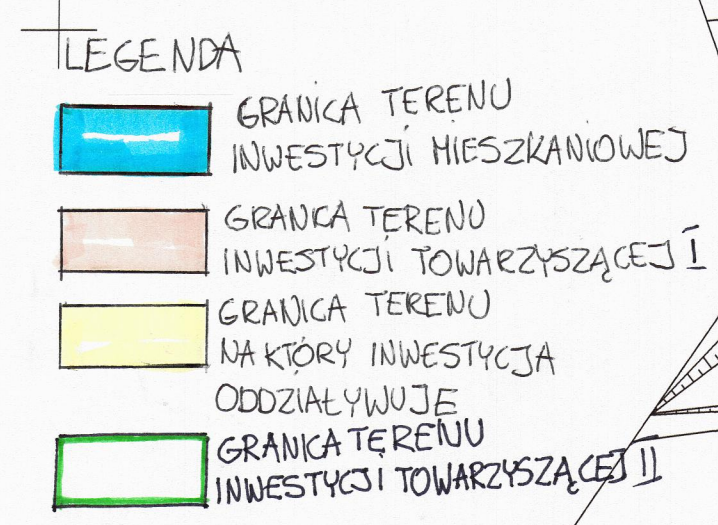 LEGENDA
GRANICA TERENU
INWESTYCJI MIESZKANIOWEJ
GRANICA TERENU
INWESTYCJI TOWARZYSZĄCEJ I
GRANICA TERENU
NA KTÓRY INWESTYCJA
ODDZIAŁYWUJE
GRANICA TERENU
INWESTYCJI TOWARZYSZĄCEJ II